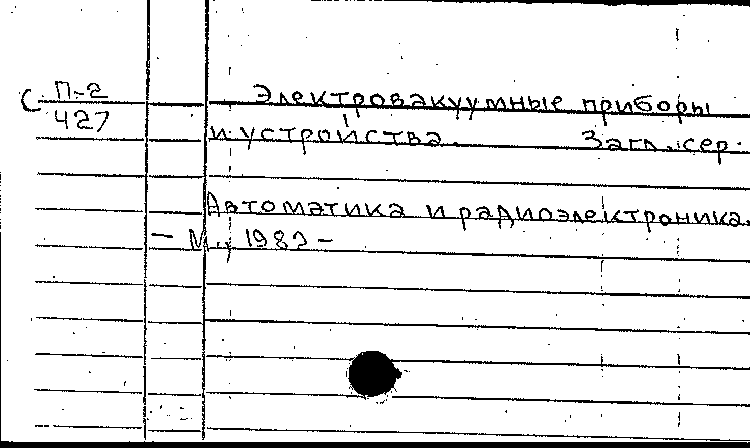 С П-2
427
Электровакуумные приборы
и устройства. Загл. сер.
Автоматика и радиоэлектроника.
— М., 1982 –